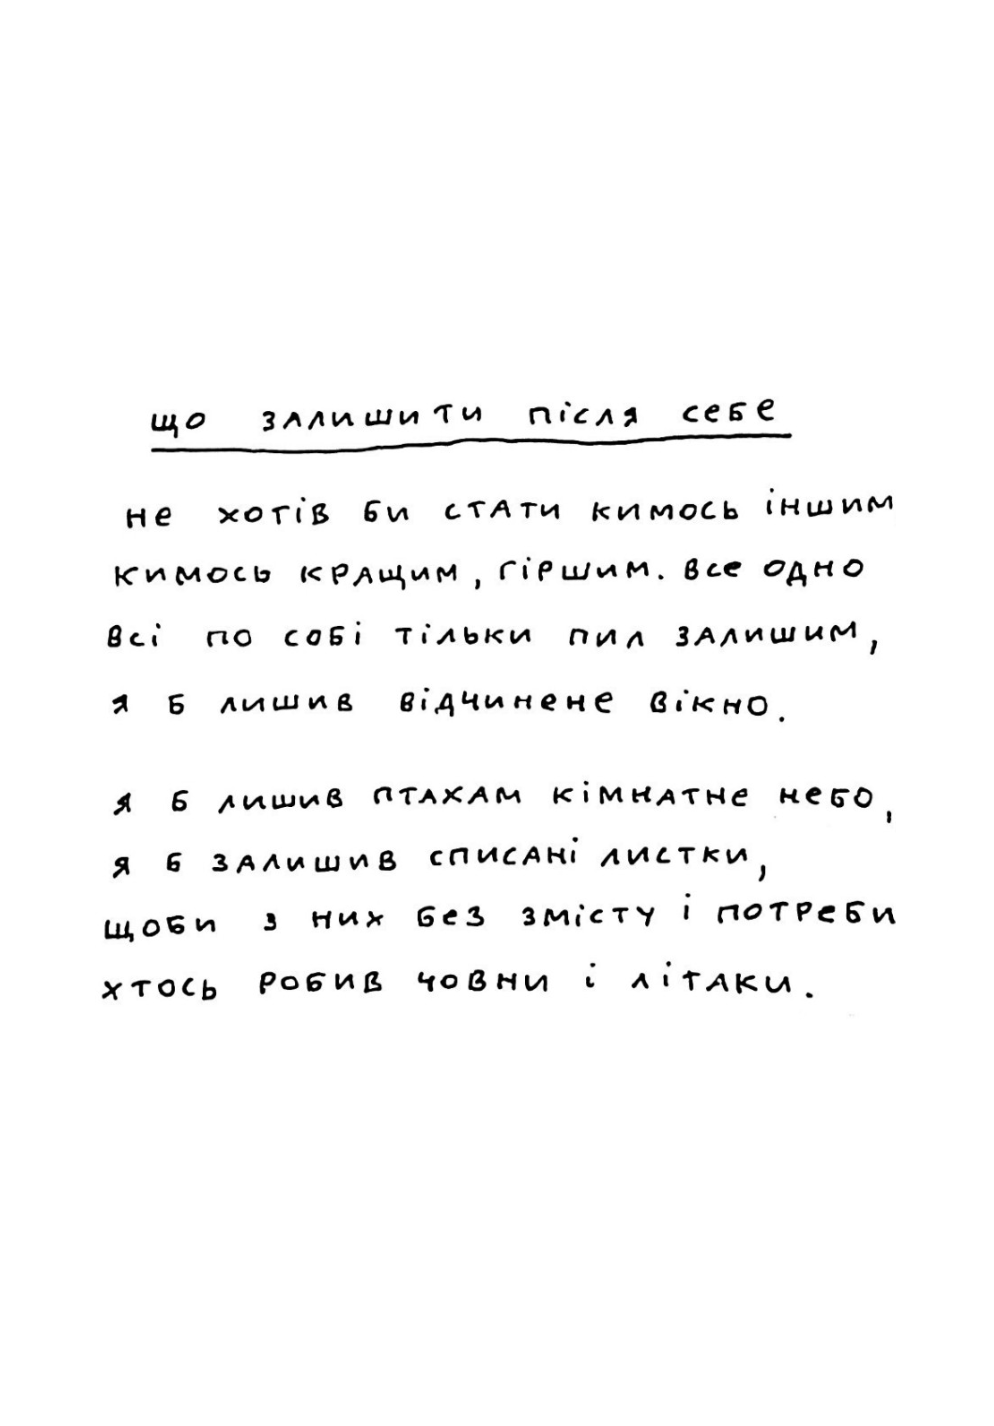 що залишити після себе
не хотів би стати кимось іншим
кимось кращим, гіршим. все одно
всі по собі тільки пил залишим,
я б лишив відчинене вікно.
я б лишив птахам кімнатне небо,
я б залишив списані листки,
щоби з них без змісту і потреби
хтось робив човни і літаки.